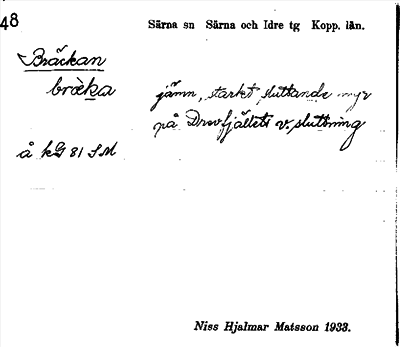 48 Särna sn Särna och Idre tg Kopp. län.
Bräckan
bræ̀ka jämn, starkt sluttande myr
på Drevfjällets v. sluttning
å kG 81 SM
Niss Hjalmar Matsson 1933.